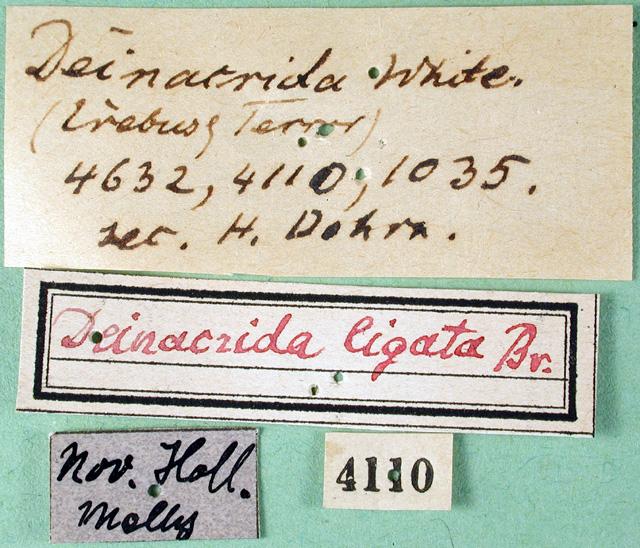 Deinacrida White.
(Erebus & Terror)
4632, 4110, 1035.
sec. H. Dohrn.
Deinacrida ligata Br.
Nov. Holl.
Melly
4110